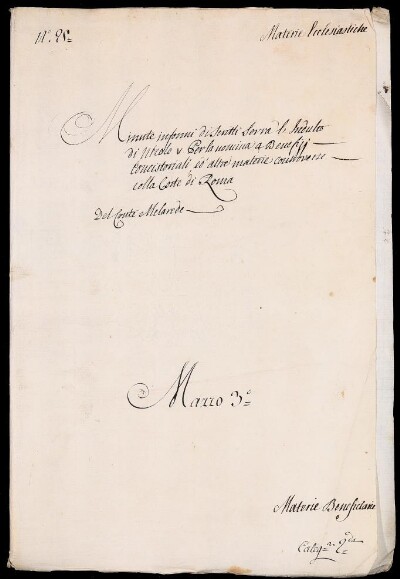 N.° 25=
Materie Ecclesiastiche
Minute informi di Scritti sovra l'Indulto
di Nicolò V Per la nomina a Benefizj
Concistoriali ed altre materie controverse
colla Corte di Roma
Del Conte Melarede
Mazzo 3.°
Materie Beneficiarie
Categ.ª 2.da